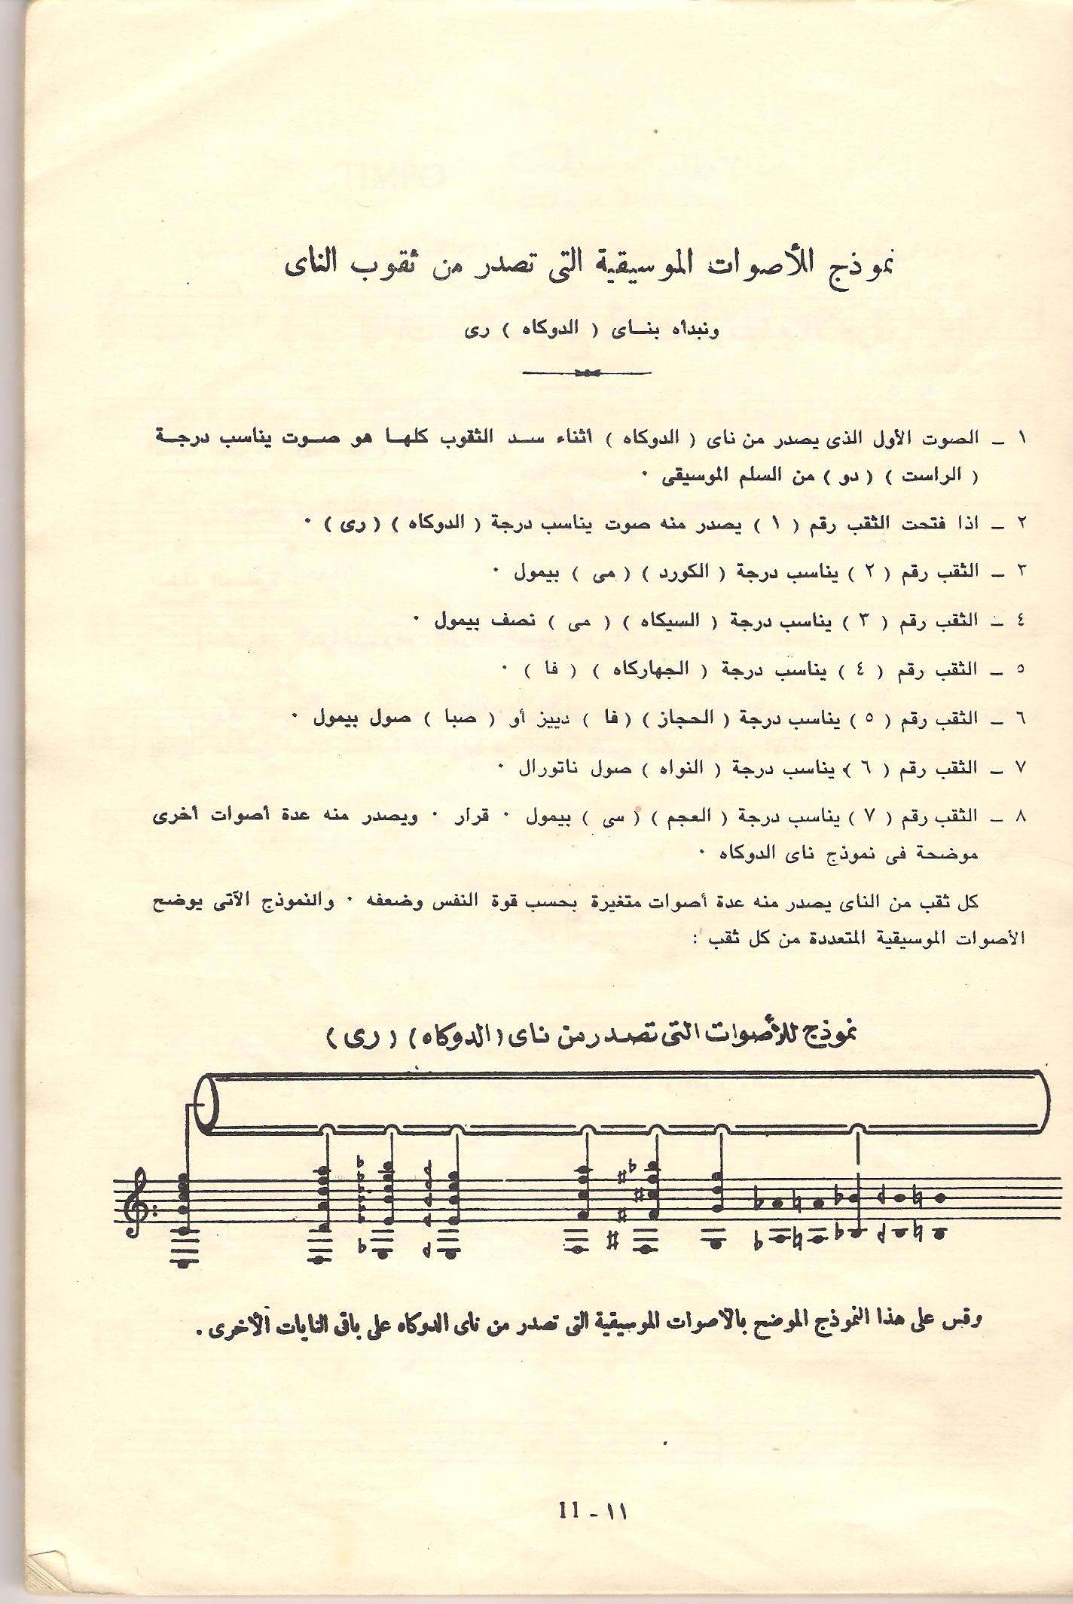 نموذج للأصوات الموسيقية التى تصدر من ثقوب الناى
ونبدأه بنـاى ( الدوكاه ) رى
١ ـ الصوت الأول الذى يصدر من ناى ( الدوكاه ) أثناء سـد الثقوب كلهـا هو صـوت يناسب درجـة
( الراست ) ( دو ) من السلم الموسيقى ٠
٢ ـ اذا فتحت الثقب رقم ( ١ ) يصدر منه صوت يناسب درجة ( الدوكاه ) ( رى ) ٠
٣ ـ الثقب رقم ( ٢ ) يناسب درجة ( الكورد ) ( مى ) بيمول ٠
٤ ـ الثقب رقم ( ٣ ) يناسب درجة ( السيكاه ) ( مى ) نصف بيمول ٠
٥ ـ الثقب رقم ( ٤ ) يناسب درجة ( الجهاركاه ) ( فا ) ٠
٦ ـ الثقب رقم ( ٥ ) يناسب درجة ( الحجاز ) ( فا ) دييز أو ( صبا ) صول بيمول ٠
٧ ـ الثقب رقم ( ٦ ) يناسب درجة ( النواه ) صول ناتورال ٠
٨ ـ الثقب رقم ( ٧ ) يناسب درجة ( العجم ) ( سى ) بيمول ٠ قرار ٠ ويصدر منه عدة أصوات أخرى
موضحة فى نموذج ناى الدوكاه ٠
كل ثقب من الناى يصدر منه عدة أصوات متغيرة بحسب قوة النفس وضعفه ٠ والنموذج الآتى يوضح
الأصوات الموسيقية المتعددة من كل ثقب :
نموذج للأصوات التى تصدر من ناى (الدوكاه) (رى)
وقس على هذا النموذج الموضح بالأصوات الموسيقية التى تصدر من ناى الدوكاه على باقى النايات الأخرى .
11 - ١١